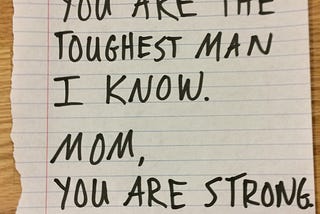 YOU ARE THE
TOUGHEST MAN
I KNOW.
MOM,
YOU ARE STRONG.